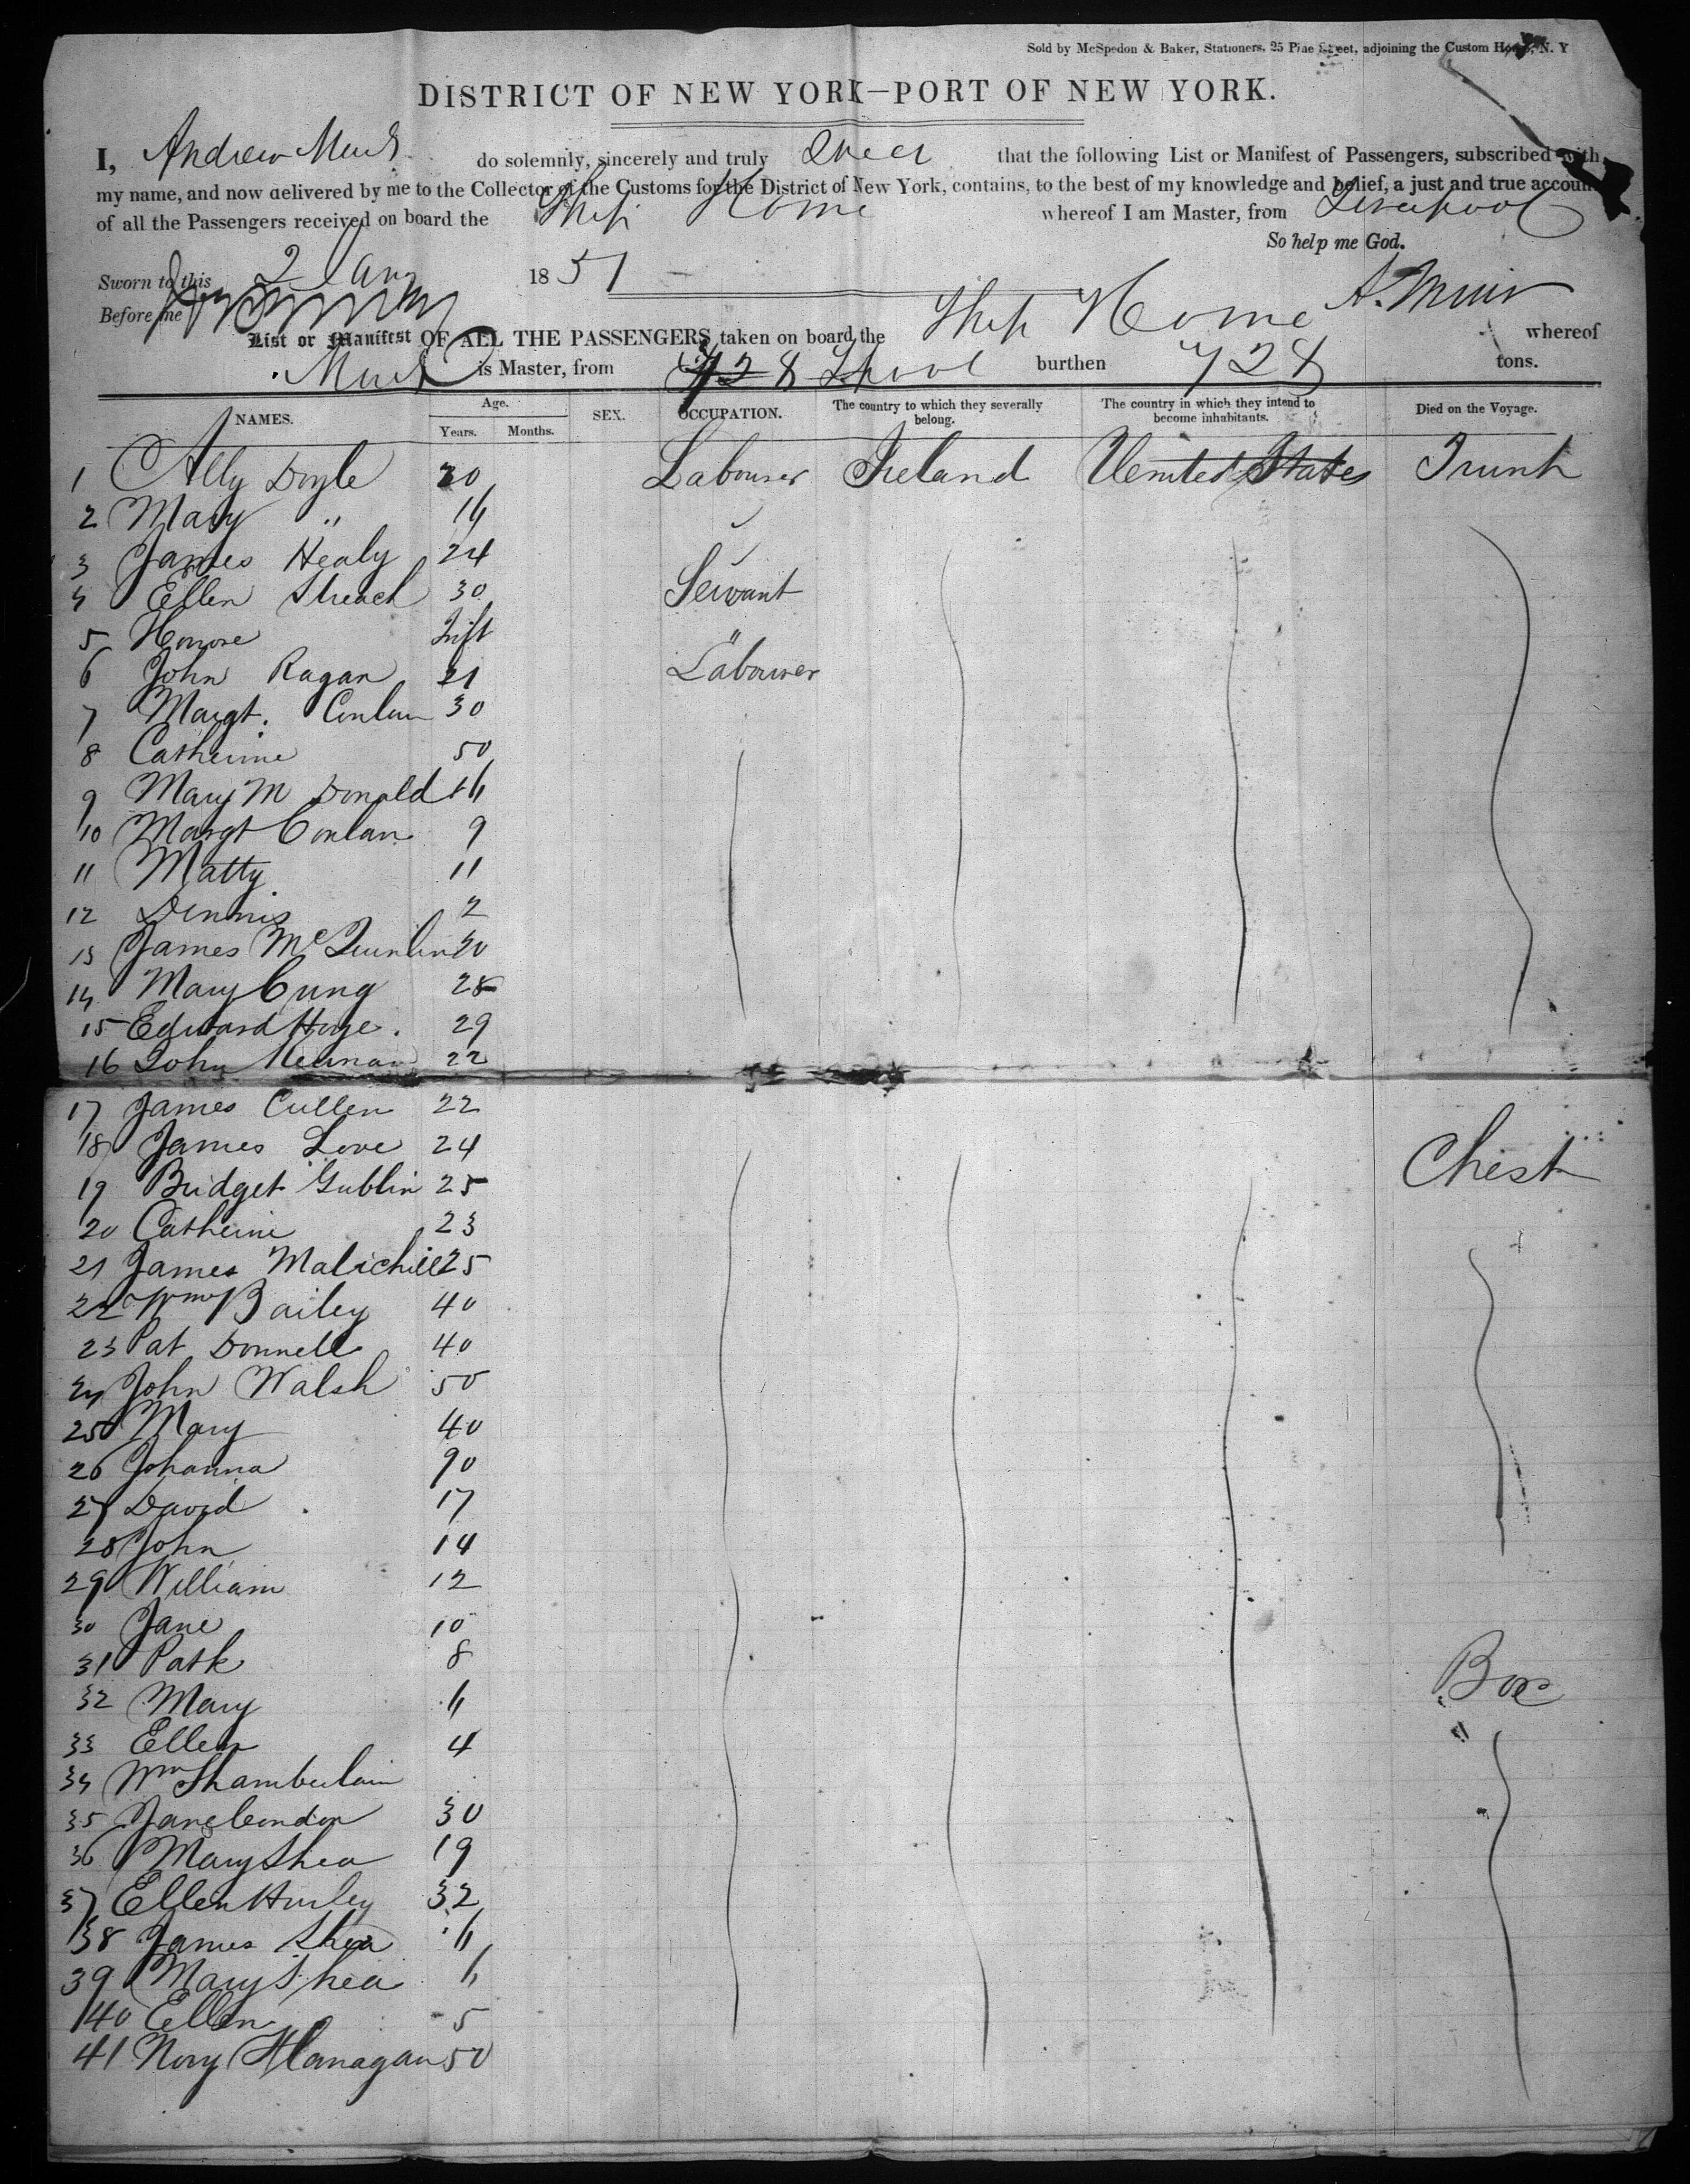 Sold by McSpedon & Baker, Stationers, 25 Pine Street, adjoining the Custom House, N. Y
DISTRICT OF NEW YORK—PORT OF NEW YORK.
I, Andrew Muir do solemnly, sincerely and truly swear that the following List or Manifest of Passengers, subscribed with
my name, and now delivered by me to the Collector of the Customs for the District of New York, contains, to the best of my knowledge and belief, a just and true account
of all the Passengers received on board the Ship Home whereof I am Master, from Liverpool
So help me God.
Sworn to this 2 Jany 1851
A. Muir
Before me
List or Manifest OF ALL THE PASSENGERS taken on board the Ship Home whereof
Muir is Master, from 728 Lpool burthen 728 tons.
NAMES. Age. Years. Months. SEX. OCCUPATION. The country to which they severally belong. The country in which they intend to become inhabitants. Died on the Voyage.
1 Ally Doyle 20 Labourer Ireland United States Trunk
2 Mary " 16
3 James Healy 24
4 Ellen Streach 30 Servant
5 Honore Inft "
6 John Ragan 21 Labourer
7 Margt. Conlan 30
8 Catherine 50
9 Mary M Donald 16
10 Margt Conlan 9
11 Matty 11
12 Dennis 2
13 James McQuinlin 20
14 Mary Cung 28
15 Edward Hoye. 29
16 John Keenan 22
17 James Cullen 22
18 James Love 24 Chest
19 Bridget Gublin 25
20 Catherine 23
21 James Malichill 25
22 Wm Bailey 40
23 Pat Donnell 40
24 John Walsh 50
25 Mary 40
26 Johanna 90
27 David 17
28 John 14
29 William 12
30 Jane 10
31 Patk 8
32 Mary 6 Box
33 Ellen 4
34 Wm Shamberlain
35 Jane Condon 30
36 Mary Shea 19
37 Ellen Hurley 32
38 James Shea 6
39 Mary Shea 6
40 Ellen 5
41 Nory Flanagan 50